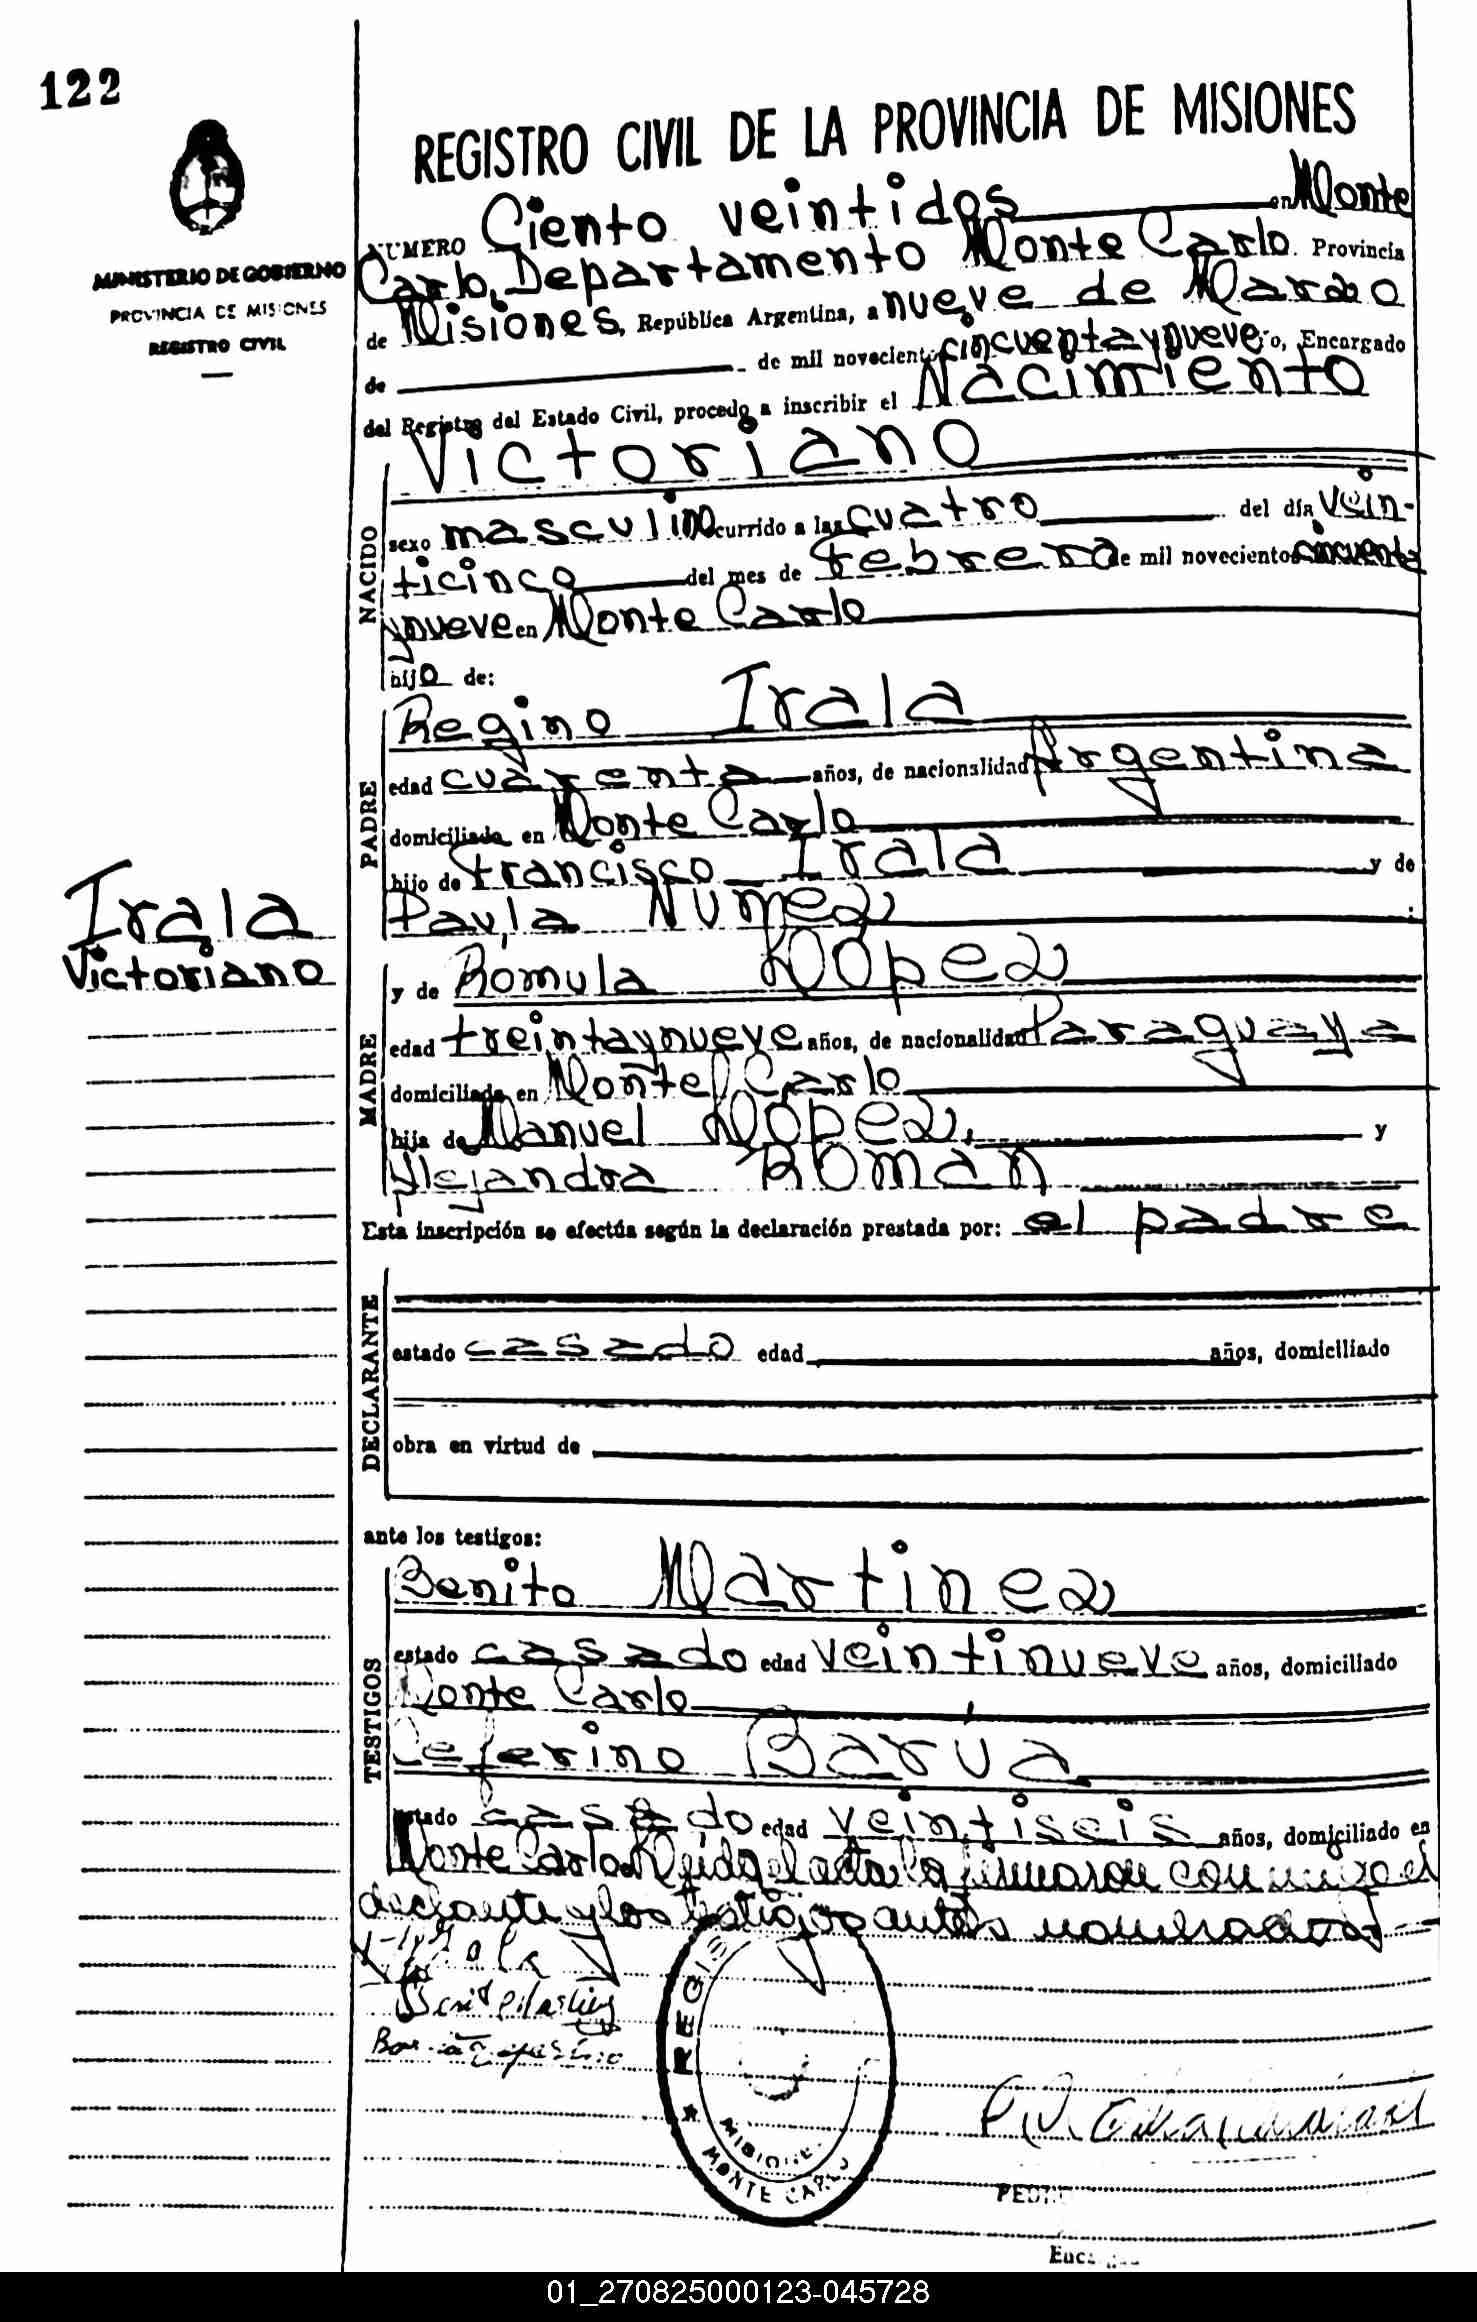 122
MINISTERIO DE GOBIERNO
PROVINCIA DE MISIONES
REGISTRO CIVIL
REGISTRO CIVIL DE LA PROVINCIA DE MISIONES
NUMERO Ciento veintidos en Monte
Carlo, Departamento Monte Carlo. Provincia
de Misiones, República Argentina, a nueve de Marzo
de de mil novecientos cincuentaynueve yo, Encargado
del Registro del Estado Civil, procedo a inscribir el Nacimiento
NACIDO
Victoriano
sexo masculino ocurrido a las cuatro del día vein-
ticinco del mes de Febrero de mil novecientos cincuenta
ynueve en Monte Carlo
hijo de:
PADRE
Regino Irala
edad cuarenta años, de nacionalidad Argentina
domiciliado en Monte Carlo
hijo de Francisco Irala y de
Paula Nuñez
Irala
Victoriano
MADRE
y de Romula López
edad treintaynueve años, de nacionalidad Paraguaya
domiciliada en Monte Carlo
hija de Manuel López, y
Alejandra Roman
Esta inscripción se efectúa según la declaración prestada por: el padre
DECLARANTE
estado casado edad años, domiciliado
obra en virtud de
ante los testigos:
TESTIGOS
Benito Martinez
estado casado edad veintinueve años, domiciliado
Monte Carlo
Ceferino Barúa
estado casado edad veintiseis años, domiciliado en
Monte Carlo. Leida el acta la firmaron conmigo el
declarante y los testigos antes nombrados
Irala
REGIS
MISIONES
MONTE CARLO
01_270825000123-045728